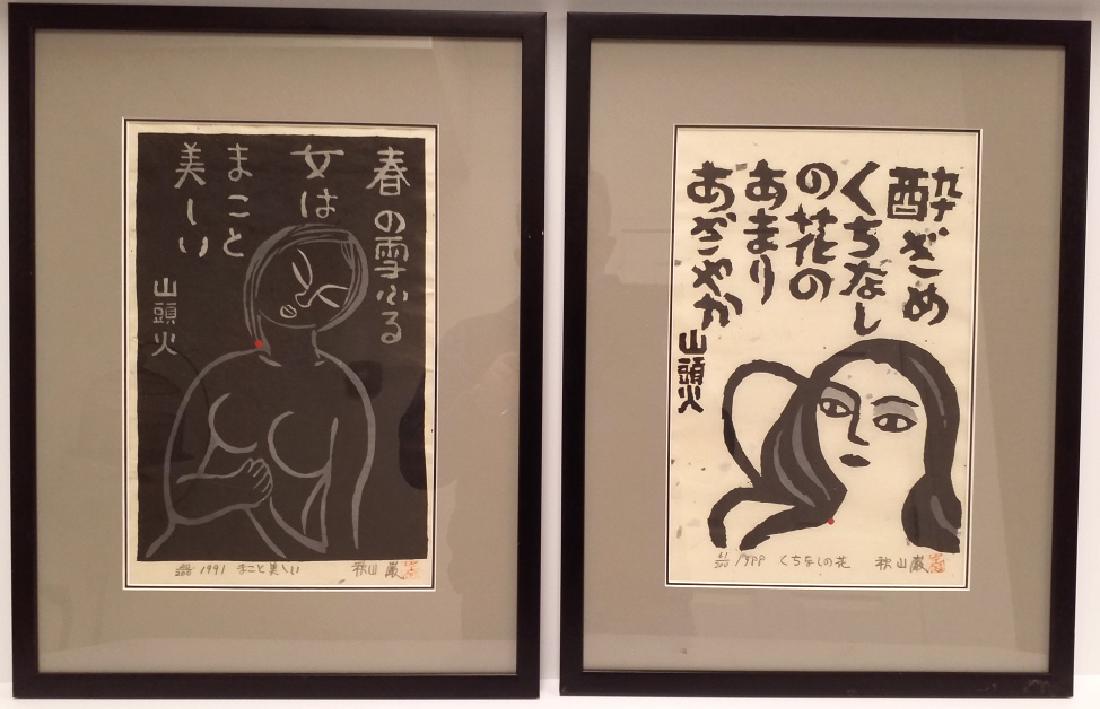 春の雪ふる
女は
まこと
美しい
山頭火
1991 まこと美しい 秋山巌
酔ざめ
くちなし
の花の
あまり
あざやか
山頭火
くちなしの花 秋山巌